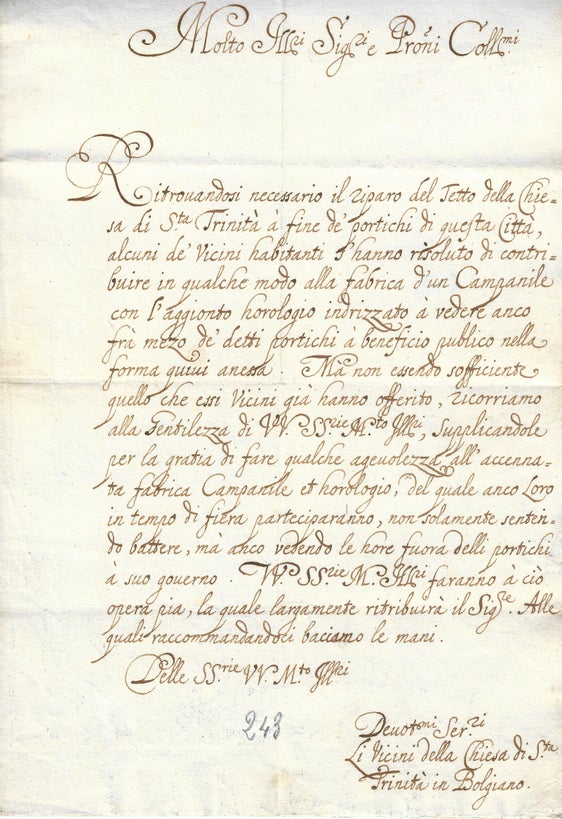 Molto Ill.ri Sig.ri e Proñi Coll.mi
Ritrouandosi necessario il riparo del Tetto della Chie=
sa di S.ta Trinità à fine de' portichi di questa Città,
alcuni de' Vicini habitanti s'hanno risoluto di contri=
buire in qualche modo alla fabrica d'un Campanile
con l'aggionto horologio indrizzato à vedere anco
frà mezo de' detti portichi à beneficio publico nella
forma quiui anessa. Mà non essendo sofficiente
quello che essi Vicini già hanno offerito, ricorriamo
alla Gentilezza di VV. SS.rie M.to Ill.ri, supplicandole
per la gratia di fare qualche ageuolezza all'accenna=
ta fabrica Campanile et horologio, del quale anco Loro
in tempo di fiera parteciparanno, non solamente senten=
do battere, mà anco vedendo le hore fuora delli portichi
à suo governo. VV. SS.rie M. Ill.ri faranno à ciò
opera pia, la quale largamente ritribuirà il Sig.re. Alle
quali raccommandandoci baciamo le mani.
Delle SS.rie VV. M.to Ill.ri
243
Devot.mi Ser.ri
Li Vicini della Chiesa di S.ta
Trinità in Bolgiano.